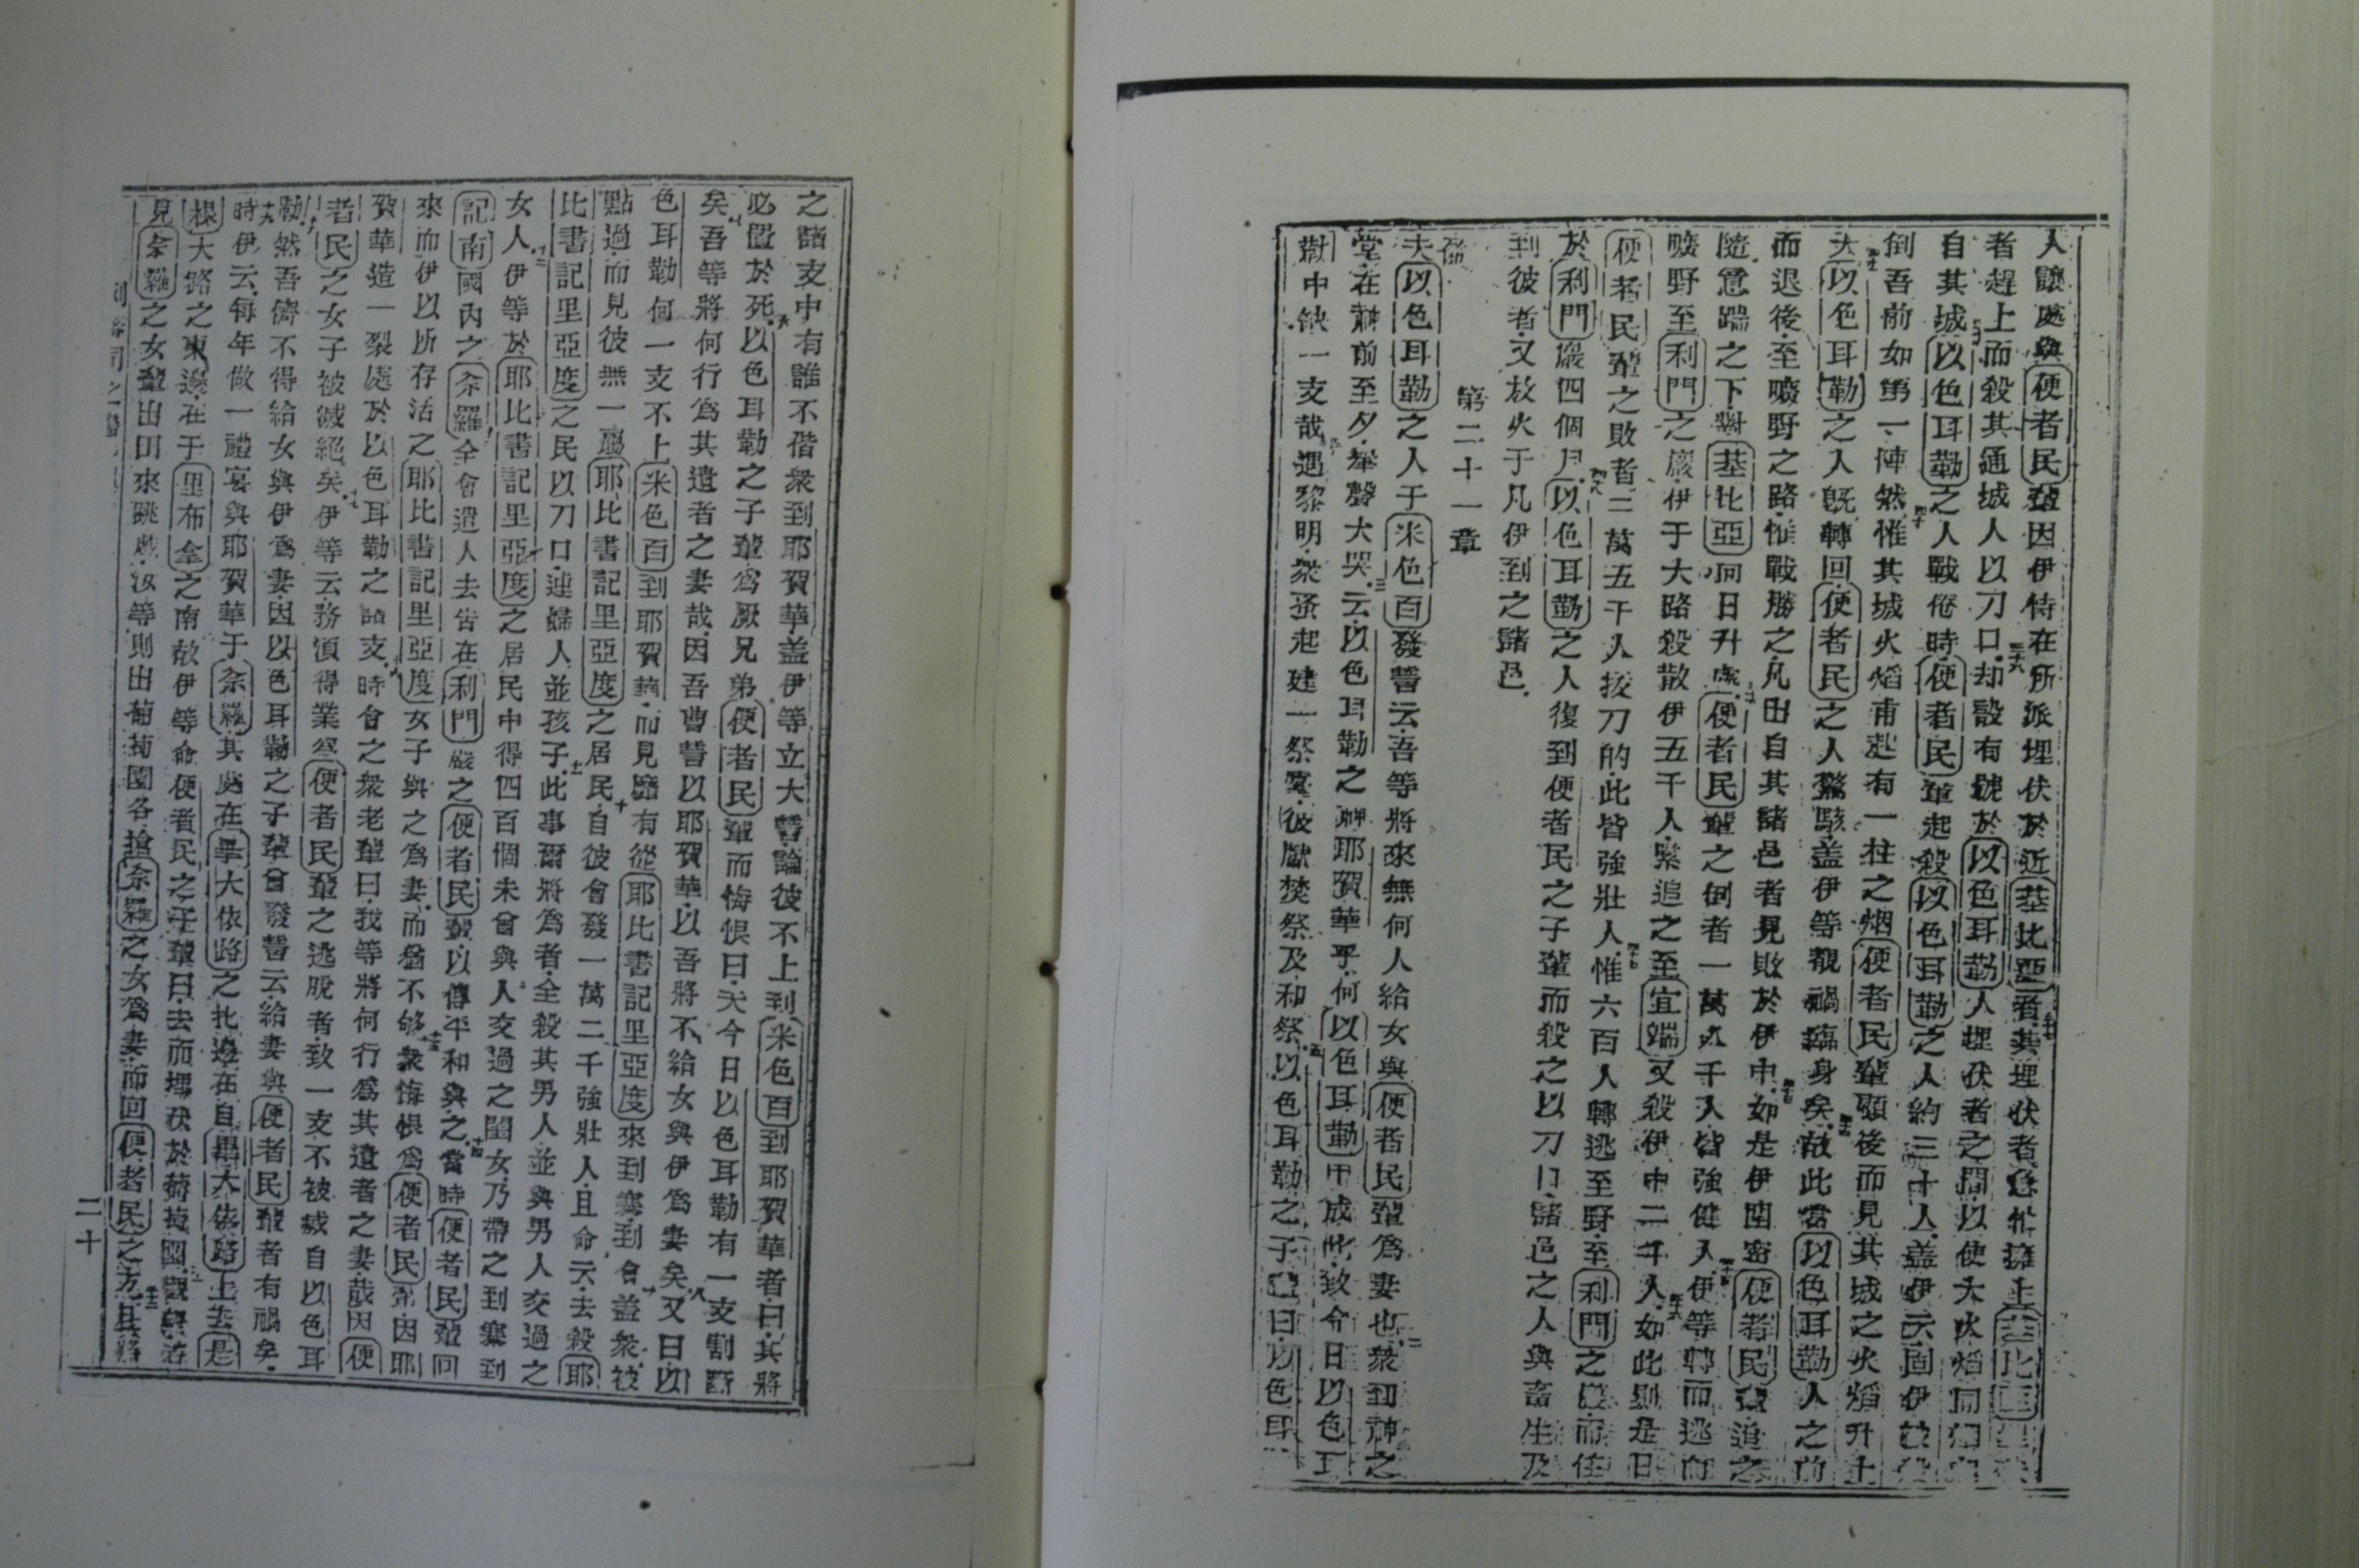 人讓處與便者民輩因伊恃在所派埋伏於近基比亞者其埋伏者急忙擁上基比亞
者趕上而殺其通城人以刀口却設有號於以色耳勒人埋伏者之間以使大火焰同烟
自其城以色耳勒之人戰倦時便者民輩起殺以色耳勒之人約三十人蓋伊云固伊
倒吾前如第一陣然惟其城火焰甫起有一柱之烟便者民輩顧後而見其城之火焰升上
夫以色耳勒之人旣轉回便者民之人驚駭蓋伊等觀禍臨身矣故此當以色耳勒人之前
而退後至曠野之路惟戰勝之凡出自其諸邑者見敗於伊中如是伊圍密便者民輩追之
隨意踹之下對基比亞向日升處便者民輩之倒者一萬八千人皆強健人伊等轉而逃向
曠野至利門之巖伊于大路殺散伊五千人緊追之至宜端又殺伊中二千人如此則是日
便者民輩之敗者二萬五千人拔刀的此皆強壯人惟六百人轉逃至野至利門之巖而住
於利門巖四個月以色耳勒之人復到便者民之子輩而殺之以刀口諸邑之人與畜生及
到彼者又放火于凡伊到之諸邑
第二十一章
夫以色耳勒之人于米色百發誓云吾等將來無何人給女與便者民輩爲妻也衆到神之
堂在神前至夕舉聲大哭云以色耳勒之神耶賀華乎何以色耳勒中成此致今日以色耳
勒中缺一支哉遇黎明衆蚤起建一祭臺彼獻焚祭及和祭以色耳勒之子輩曰以色耳
之諸支中有誰不偕衆到耶賀華蓋伊等立大誓論彼不上到米色百到耶賀華者曰其將
必置於死以色耳勒之子輩爲厥兄弟便者民輩而悔恨曰夫今日以色耳勒有一支割斷
矣吾等將何行爲其遺者之妻哉因吾曹誓以耶賀華以吾將不給女與伊爲妻矣又曰以
色耳勒何一支不上米色百到耶賀華而見無有從耶比書記里亞度來到寨到會蓋衆被
點過而見彼無一屬耶比書記里亞度之居民自彼會發一萬二千強壯人且命云去殺耶
比書記里亞度之民以刀口連婦人並孩子此事爾將爲者全殺其男人並與男人交過之
女人伊等於耶比書記里亞度之居民中得四百個未曾與人交過之閨女乃帶之到寨到
記南國內之佘羅全會遣人去告在利門巖之便者民輩以傳平和與之當時便者民輩回
來而伊以所存活之耶比書記里亞度女子與之爲妻而猶不够衆悔恨爲便者民輩因耶
賀華造一裂處於以色耳勒之諸支時會之衆老輩曰我等將何行爲其遺者之妻哉因便
者民之女子被滅絕矣伊等云務須得業爲便者民輩之逃脫者致一支不被滅自以色耳
勒然吾儕不得給女與伊爲妻因以色耳勒之子輩曾發誓云給妻與便者民輩者有禍矣
時伊云每年做一禮宴與耶賀華于佘羅其處在畢大依路之北邊在自畢大依路上去是
根大路之東邊在于里布拿之南故伊等命便者民之子輩曰去而埋伏於萄萄園觀與若
見佘羅之女輩出田來跳戲汝等則出葡萄園各搶佘羅之女爲妻而回便者民之方且將
二十